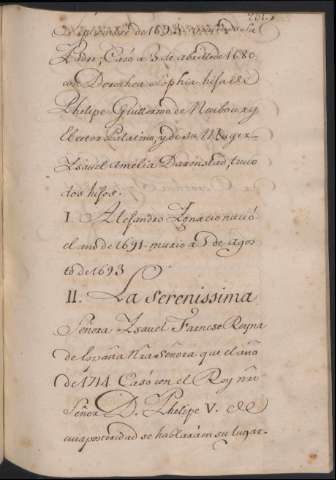 de 1693
Padre, Casó a 3 de abril de 1680.
con Dorothea Sophia hija de
Phelipe Guillermo de Neubourg
Elector Palatino, y de su Muger
Ysavel Amelia Darmstad, tuvo
dos hijos.
I. Alejandro Ignacio nació
el año de 1691. murio a 5 de agos
to de 1693
II. La Serenissima
Señora Ysavel Farneso Reyna
de España Nra Señora que el año
de 1714 Casó con el Rey nro
Señor D. Phelipe V. de
cuia posteridad se hablará en su lugar.